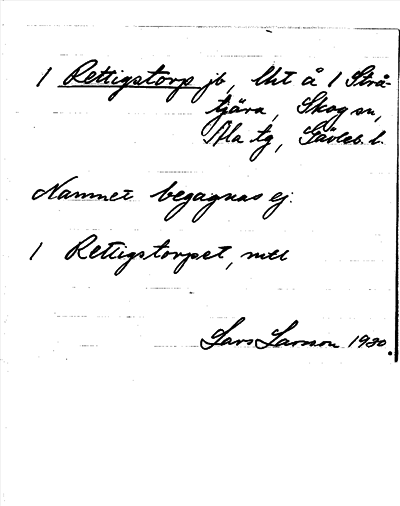 1 Rettigstorp jb, lht å 1 Strå-
tjära, Skog sn,
Ala tg, Gävleb. l.
Namnet begagnas ej.
1 Rettigstorpet,
Lars Larsson 1930.